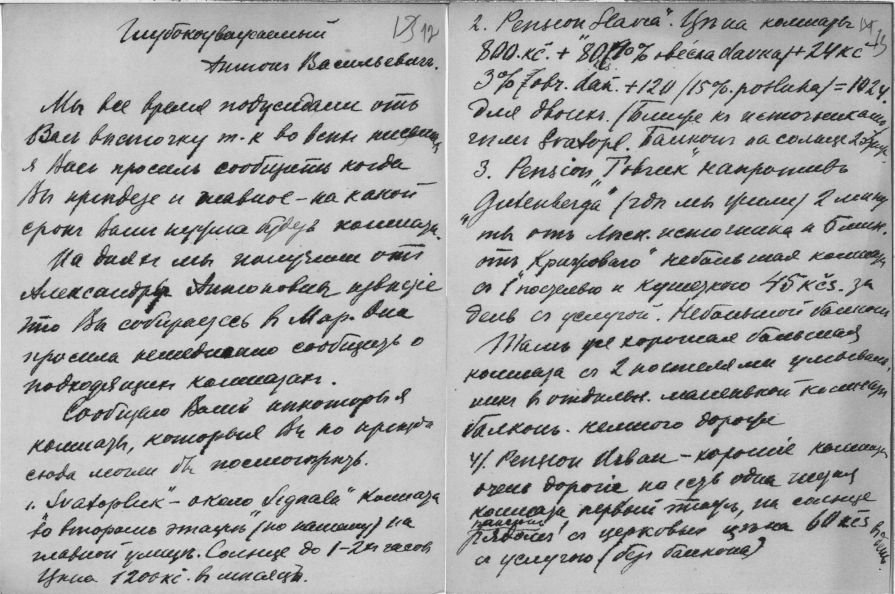 Глубокоуважаемый
Антонъ Васильевичъ.
Мы все время поджидали отъ
Васъ весточку т.к во всехъ письмахъ
я Васъ просилъ сообщить когда
Вы приедете и главное – на какой
срокъ Вамъ нужна будетъ комната.
На дняхъ мы получили отъ
Александры Антоновны известіе
что Вы собираетесь в Мар. Она
просила немедленно сообщить о
подходящихъ комнатахъ.
Сообщаю Вамъ некоторыя
комнаты, которыя Вы по приезде
сюда могли бы посмотреть.
1. "Svatopluk" – около "Signala" комната
"во второмъ этаже" (по нашему) на
главной улице. Солнце до 1–2хъ часов
Цена 1200 kč. в месяцъ.
12
2. Pension "Slavia". Цена комнаты
800. kč. + 80/10%
3% + 120 /15%. = 1024
для двоихъ. (Ближе къ источникамъ
чемъ Svatopl. Балконъ на солнце
3. Pension "Товчик" напротивъ
"Gutenberga" (где мы жили) 2 мину
ты отъ источника и близк.
отъ "Крестоваго" небольшая комната
съ 1 постелью и кушеткой 45 kčs. за
день съ услугой. Небольшой балконъ
Тамъ же хорошая большая
комната съ 2 постелями умываль.
никъ в отдельн. маленькой комнате
балконъ. немного дороже
4/. Pension Иван – хорошіе комнаты
очень дорогіе но есть одна
комната первый этажъ, на солнце
рядомъ съ церковью цена 60 kčs
съ услугою (безъ балкона)